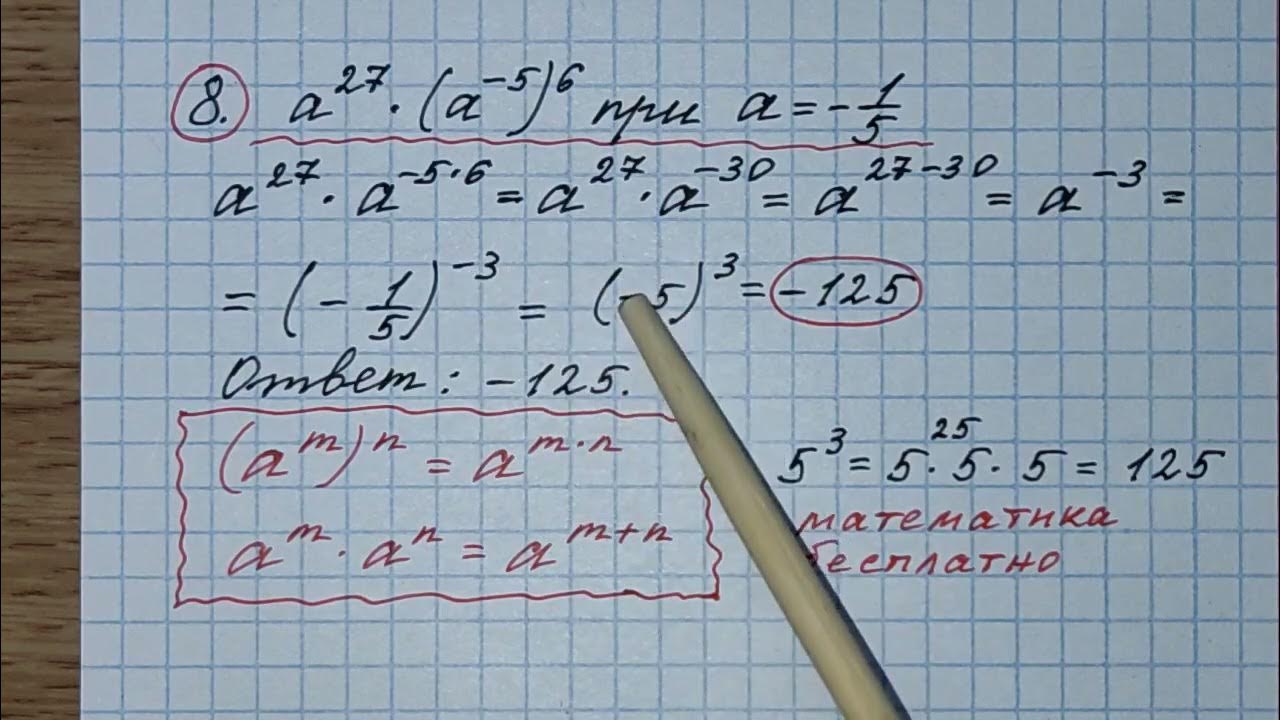 8. a^27 · (a^-5)^6 при a = -1/5
a^27 · a^-5·6 = a^27 · a^-30 = a^27-30 = a^-3 =
= (-1/5)^-3 = (-5)^3 = -125
Ответ: -125.
(a^m)^n = a^m·n
a^m · a^n = a^m+n
25
5^3 = 5 · 5 · 5 = 125
математика
бесплатно